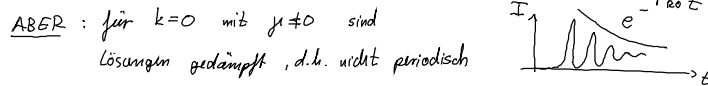 ABER : für k=0 mit μ≠0 sind
Lösungen gedämpft, d.h. nicht periodisch
I
e
t